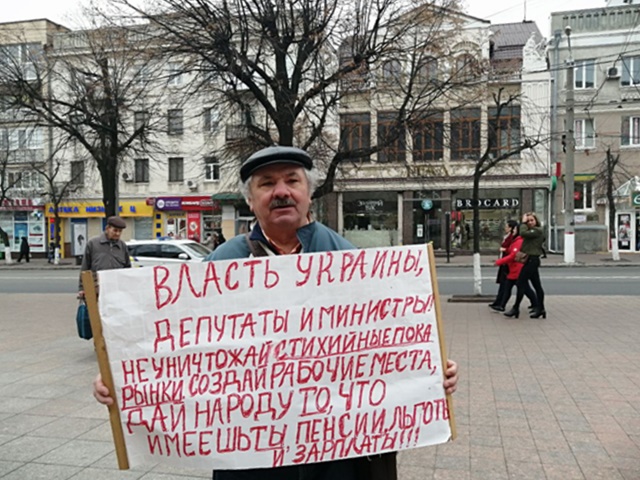 ВЛАСТЬ УКРАИНЫ,
ДЕПУТАТЫ И МИНИСТРЫ!
НЕ УНИЧТОЖАЙ СТИХИЙНЫЕ ПОКА
РЫНКИ, СОЗДАЙ РАБОЧИЕ МЕСТА,
ДАЙ НАРОДУ ТО, ЧТО
ИМЕЕШЬ ТЫ, ПЕНСИИ, ЛЬГОТЫ
И ЗАРПЛАТЫ!!!
BROCARD